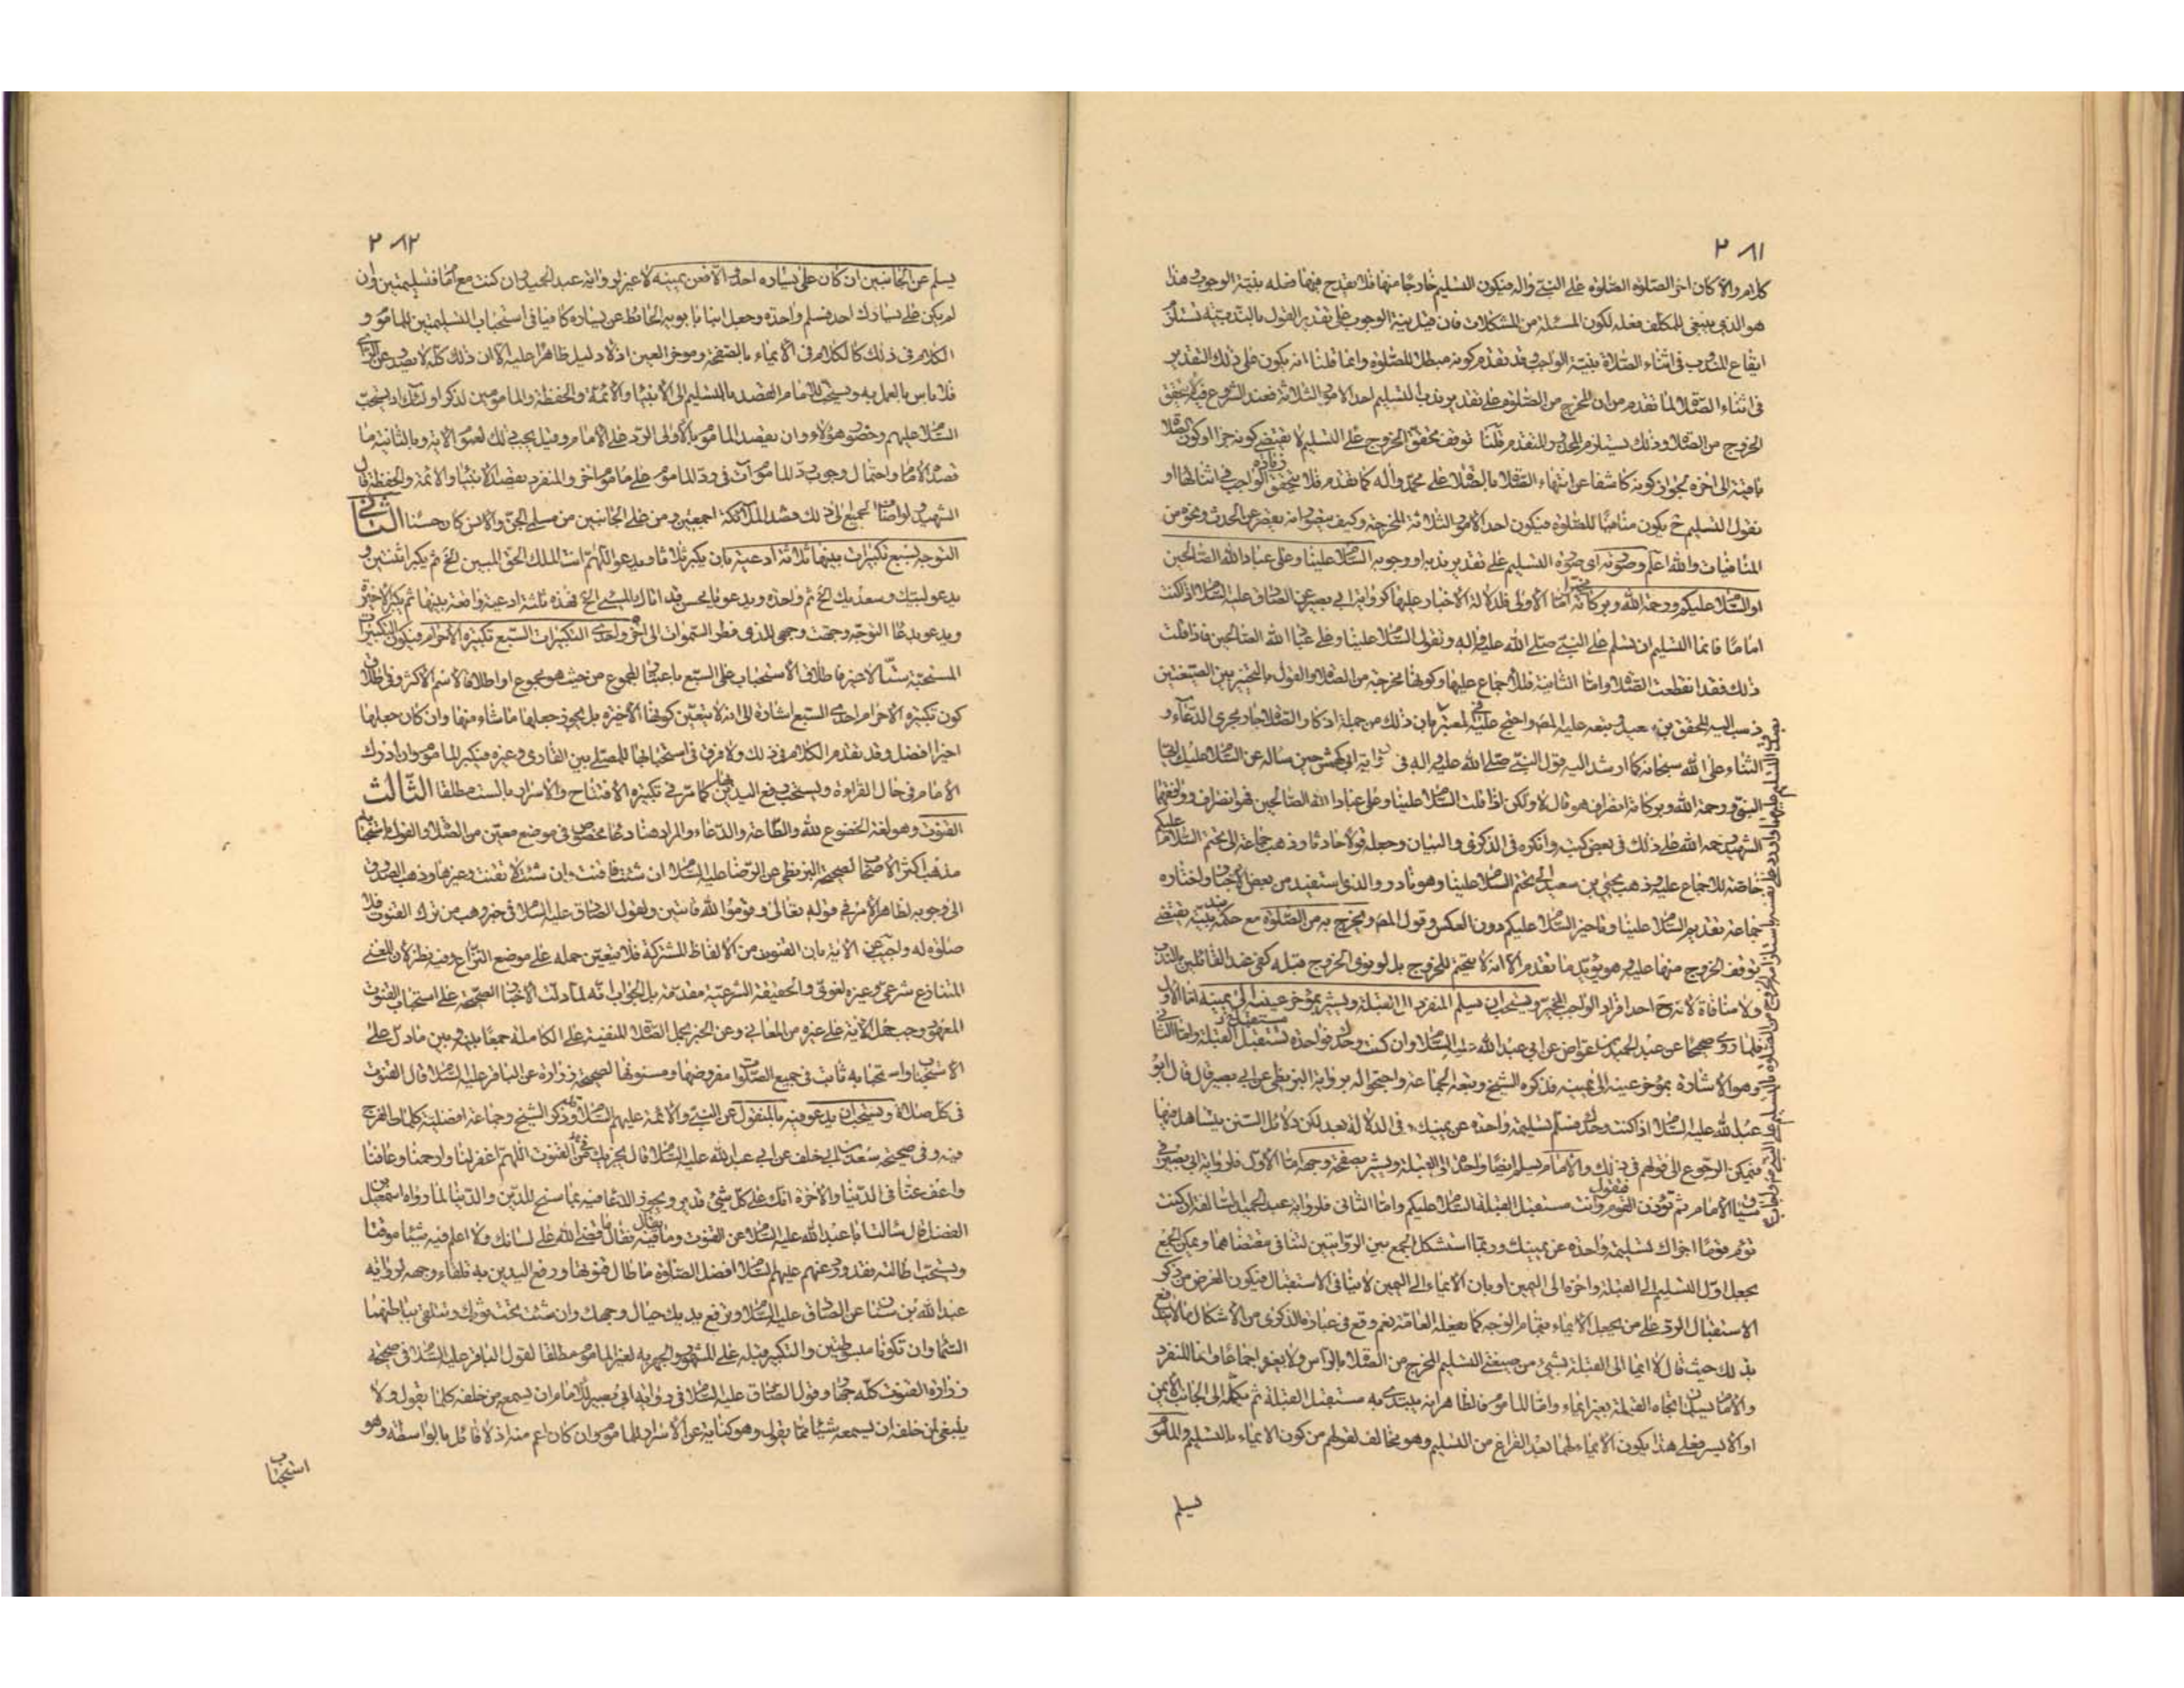 ٢٨١
كلام والا كان اخر الصلوة الصلوة على النبي واله فيكون التسليم خارجا منها فلا يقدح فيها فعله بنية الوجوب هذا
هو الذي ينبغي للمكلف فعله لكون المسئلة من المشكلات فان قيل نية الوجوب على تقدير القول بالندبية تستلزم
ايقاع المندوب في اثناء الصلاة بنية الواجب وقد تقدم كونه مبطلا للصلوة وانما قلنا انه يكون على ذلك التقدير
في اثناء الصلا لما تقدم من ان المخرج من الصلوة على تقدير ندب التسليم احد الامور الثلاثة فعند الشروع فيه لا يتحقق
الخروج من الصلا وذلك يستلزم المحذور المتقدم قلنا توقف تحقق الخروج على التسليم لا يقتضي كونه جزا او كون الصلا
باقية الى اخره لجواز كونه كاشفا عن انتهاء الصلا بالصلا على محمد واله كما تقدم فلا يتحقق الواجب في اثنائها او
نقول التسليم ح يكون منافيا للصلوة فيكون احد الامور الثلاثة المخرجة وكيف يقصر عن الحدث ونحوه من
المنافيات والله اعلم وصورته اى صورة التسليم على تقدير ندبه او وجوبه السلا علينا وعلى عباد الله الصالحين
او السلا عليكم ورحمة الله وبركاته اما الاولى فلدلالة الاخبار عليها كرواية ابي بصير عن الصادق عليه السلا اذا كنت
اماما فانما التسليم ان تسلم على النبي صلى الله عليه واله وتقول السلا علينا وعلى عباد الله الصالحين فاذا قلت
ذلك فقد انقطعت الصلا واما الثانية فللاجماع عليها وكونها مخرجة من الصلا والقول بالتخيير بين الصيغتين
ذهب اليه المحقق وتبعه عليه المص واحتج عليه في المعتبر بان ذلك من جملة اذكار الصلا جار مجرى الدعاء و
الثناء على الله سبحانه كما ارشد اليه قول النبي صلى الله عليه واله في رواية ابي كهمش حين ساله عن السلا عليك ايها
النبي ورحمة الله وبركاته انصراف هو قال لا ولكن اذا قلت السلا علينا وعلى عباد الله الصالحين فهو انصراف ووافقهما
الشهيد رحمه الله على ذلك في بعض كتبه وانكره في الذكرى والبيان وجعله قولا حادثا وذهب جماعة الى تحتم السلا عليكم
خاصة للاجماع عليه وذهب يحيى بن سعيد الى تحتم السلا علينا وهو نادر والذي استفيد من بعض الاخبار واختاره
جماعة تقديم السلا علينا وتاخير السلا عليكم دون العكس وقول المص ويخرج به من الصلوة مع حكمه بندبيته يقتضي
توقف الخروج منها عليه وهو يؤيد ما تقدم الا انه لا يتحتم للخروج بل لو نوى الخروج قبله كفى عند القائلين بالندب
ولا منافاة لانه ح احد افراد الواجب المخير ويستحب ان يسلم المنفرد الى القبلة ويشير بمؤخر عينيه الى يمينه اما الاول
فلما روى صحيحا عن عبد الحميد بن عواض عن ابي عبد الله عليه السلا وان كنت وحدك فواحدة مستقبل القبلة واما الثاني
وهو الاشارة بمؤخر عينيه الى يمينه فذكره الشيخ وتبعه الجماعة واحتجوا له برواية البزنطي عن ابي بصير قال قال ابو
عبد الله عليه السلا اذا كنت وحدك فسلم تسليمة واحدة عن يمينك وفي الدلالة بعد لكن دلائل السنن يتساهل فيها
فيمكن الرجوع الى قولهم في ذلك والامام يسلم ايضا واحدة الى القبلة ويشير بصفحة وجهه اما الاول فلرواية ابي بصير في
سياق الامام ثم تؤذن القوم فتقول وانت مستقبل القبلة السلا عليكم واما الثاني فلرواية عبد الحميد السالفة ان كنت
تؤم قوما اجزاك تسليمة واحدة عن يمينك وربما استشكل الجمع بين الروايتين لتنافي مقتضاهما ويمكن الجمع
بجعل اول التسليم الى القبلة واخره الى اليمين او بان الايماء الى اليمين لا ينافي الاستقبال فيكون الغرض من ذكر
الاستقبال الرد على من يجعل الايماء بتمام الوجه كما يفعله العامة نعم وقع في عبارة الذكرى من الاشكال ما لا يندفع
بذلك حيث قال لا ايماء الى القبلة بشئ من صيغتي التسليم المخرج من الصلا بالراس ولا بغيره اجماعا وانما المنفرد
والامام يسلمان تجاه القبلة بغير ايماء واما الماموم فالظاهر انه يبتدى به مستقبل القبلة ثم يكمله الى الجانب الايمن
او الايسر فعلى هذا يكون الايماء لهما بعد الفراغ من التسليم وهو مخالف لقولهم من كون الايماء بالتسليم والماموم
يسلم
٢٨٢
يسلم عن الجانبين ان كان على يساره احد والا فعن يمينه لا غير لرواية عبد الحميد وان كنت مع امام فتسليمتين وان
لم يكن على يسارك احد فسلم واحدة وجعل ابنا بابويه الحائط عن يساره كافيا في استحباب التسليمتين للماموم و
الكلام في ذلك كالكلام في الايماء بالصفحة ومؤخر العين اذ لا دليل ظاهرا عليه الا ان ذلك كله لا يصدر عن الراى
فلا باس بالعمل به ويستحب للامام القصد بالتسليم الى الانبياء والائمة والحفظة والمامومين لذكر اولئك اذ يستحب
السلا عليهم وحضور هؤلاء وان يقصد الماموم بالاولى الرد على الامام وقيل يجب ذلك لعموم الاية وبالثانية ما
قصده الامام واحتمال وجوب رد الماموم على ماموم اخر والمنفرد يقصد الانبياء والائمة والحفظة قال
الشهيد ولو اضاف الجميع الى ذلك قصد الملائكة اجمعين ومن على الجانبين من مسلمي الجن والانس كان حسنا الثاني
التوجه بسبع تكبيرات بينها ثلاثة ادعية بان يكبر ثلاثا ويدعو اللهم انت الملك الحق المبين الخ ثم يكبر اثنتين و
يدعو لبيك وسعديك الخ ثم واحدة ويدعو يا محسن قد اتاك المسئ الخ فهذه ثلثة ادعية واقعة بينها ثم يكبر الاخيرة
ويدعو بدعاء التوجه وجهت وجهي للذي فطر السموات الى اخره واحدى التكبيرات السبع تكبيرة الاحرام فيكون التكبيرات
المستحبة ستا الا خير فاطلاق الاستحباب على السبع باعتبار المجموع من حيث هو مجموع او اطلاقا لاسم الاكثر وفي اطلاق
كون تكبيرة الاحرام احدى السبع اشارة الى انه لا يتعين كونها الاخيرة بل يجوز جعلها ما شاء منها وان كان جعلها
اخيرا افضل وقد تقدم الكلام في ذلك ولا فرق في استحبابها للمصلي بين القارى وغيره فيكبر الماموم وان ادرك
الامام في حال القراءة ويستحب رفع اليدين بها كما مر في تكبيرة الافتتاح والاسرار بالست مطلقا الثالث
القنوت وهو لغة الخضوع لله والطاعة والدعاء والمراد هنا دعاء مخصوص في موضع معين من الصلا والقول باستحبابه
مذهب اكثر الاصحاب لصحيحة البزنطي عن الرضا عليه السلا ان شئت فاقنت وان شئت لا تقنت وغيرها وذهب الصدوق
الى وجوبه لظاهر الامر في قوله تعالى وقوموا لله قانتين ولقول الصادق عليه السلا في خبر وهب من ترك القنوت فلا
صلوة له واجيب عن الاية بان القنوت من الالفاظ المشتركة فلا يتعين حمله على موضع النزاع وفيه نظر لان المعنى
المتنازع شرعي وغيره لغوي والحقيقة الشرعية مقدمة بل الجواب انه لما دلت الاخبار الصحيحة على استحباب القنوت
المعهود وجب حمل الاية على غيره من المعاني وعن الخبر بحمل الصلا المنفية على الكاملة جمعا بينه وبين ما دل على
الاستحباب واستحبابه ثابت في جميع الصلوات مفروضها ومسنونها لصحيحة زرارة عن الباقر عليه السلا قال القنوت
في كل صلاة ويستحب ان يدعو فيه بالمنقول عن النبي والائمة عليهم السلا وذكر الشيخ وجماعة افضلية كلمات الفرج
فيه وفي صحيحة سعد بن ابي خلف عن ابي عبد الله عليه السلا قال يجزيك في القنوت اللهم اغفر لنا وارحمنا وعافنا
واعف عنا في الدنيا والاخرة انك على كل شئ قدير ويجوز الدعاء فيه بما سنح للدين والدنيا لما رواه اسمعيل بن
الفضل قال سالت ابا عبد الله عليه السلا عن القنوت وما يقال فيه فقال ما قضى الله على لسانك ولا اعلم فيه شيئا موقتا
ويستحب اطالته فقد ورد عنهم عليهم السلا افضل الصلوة ما طال قنوتها ورفع اليدين به تلقاء وجهه لرواية
عبد الله بن سنان عن الصادق عليه السلا وترفع يديك حيال وجهك وان شئت تحت ثوبك وتتلقى بباطنهما
السماء وان تكونا مبسوطتين والتكبير قبله على المشهور والجهر به لغير الماموم مطلقا لقول الباقر عليه السلا في صحيحة
زرارة القنوت كله جهار وقول الصادق عليه السلا في رواية ابي بصير للامام ان يسمع من خلفه كلما يقول ولا
ينبغي لمن خلفه ان يسمعه شيئا مما يقول وهو كناية عن الاسرار للماموم وان كان اعم منه اذ لا قائل بالواسطة وهو
استحباب